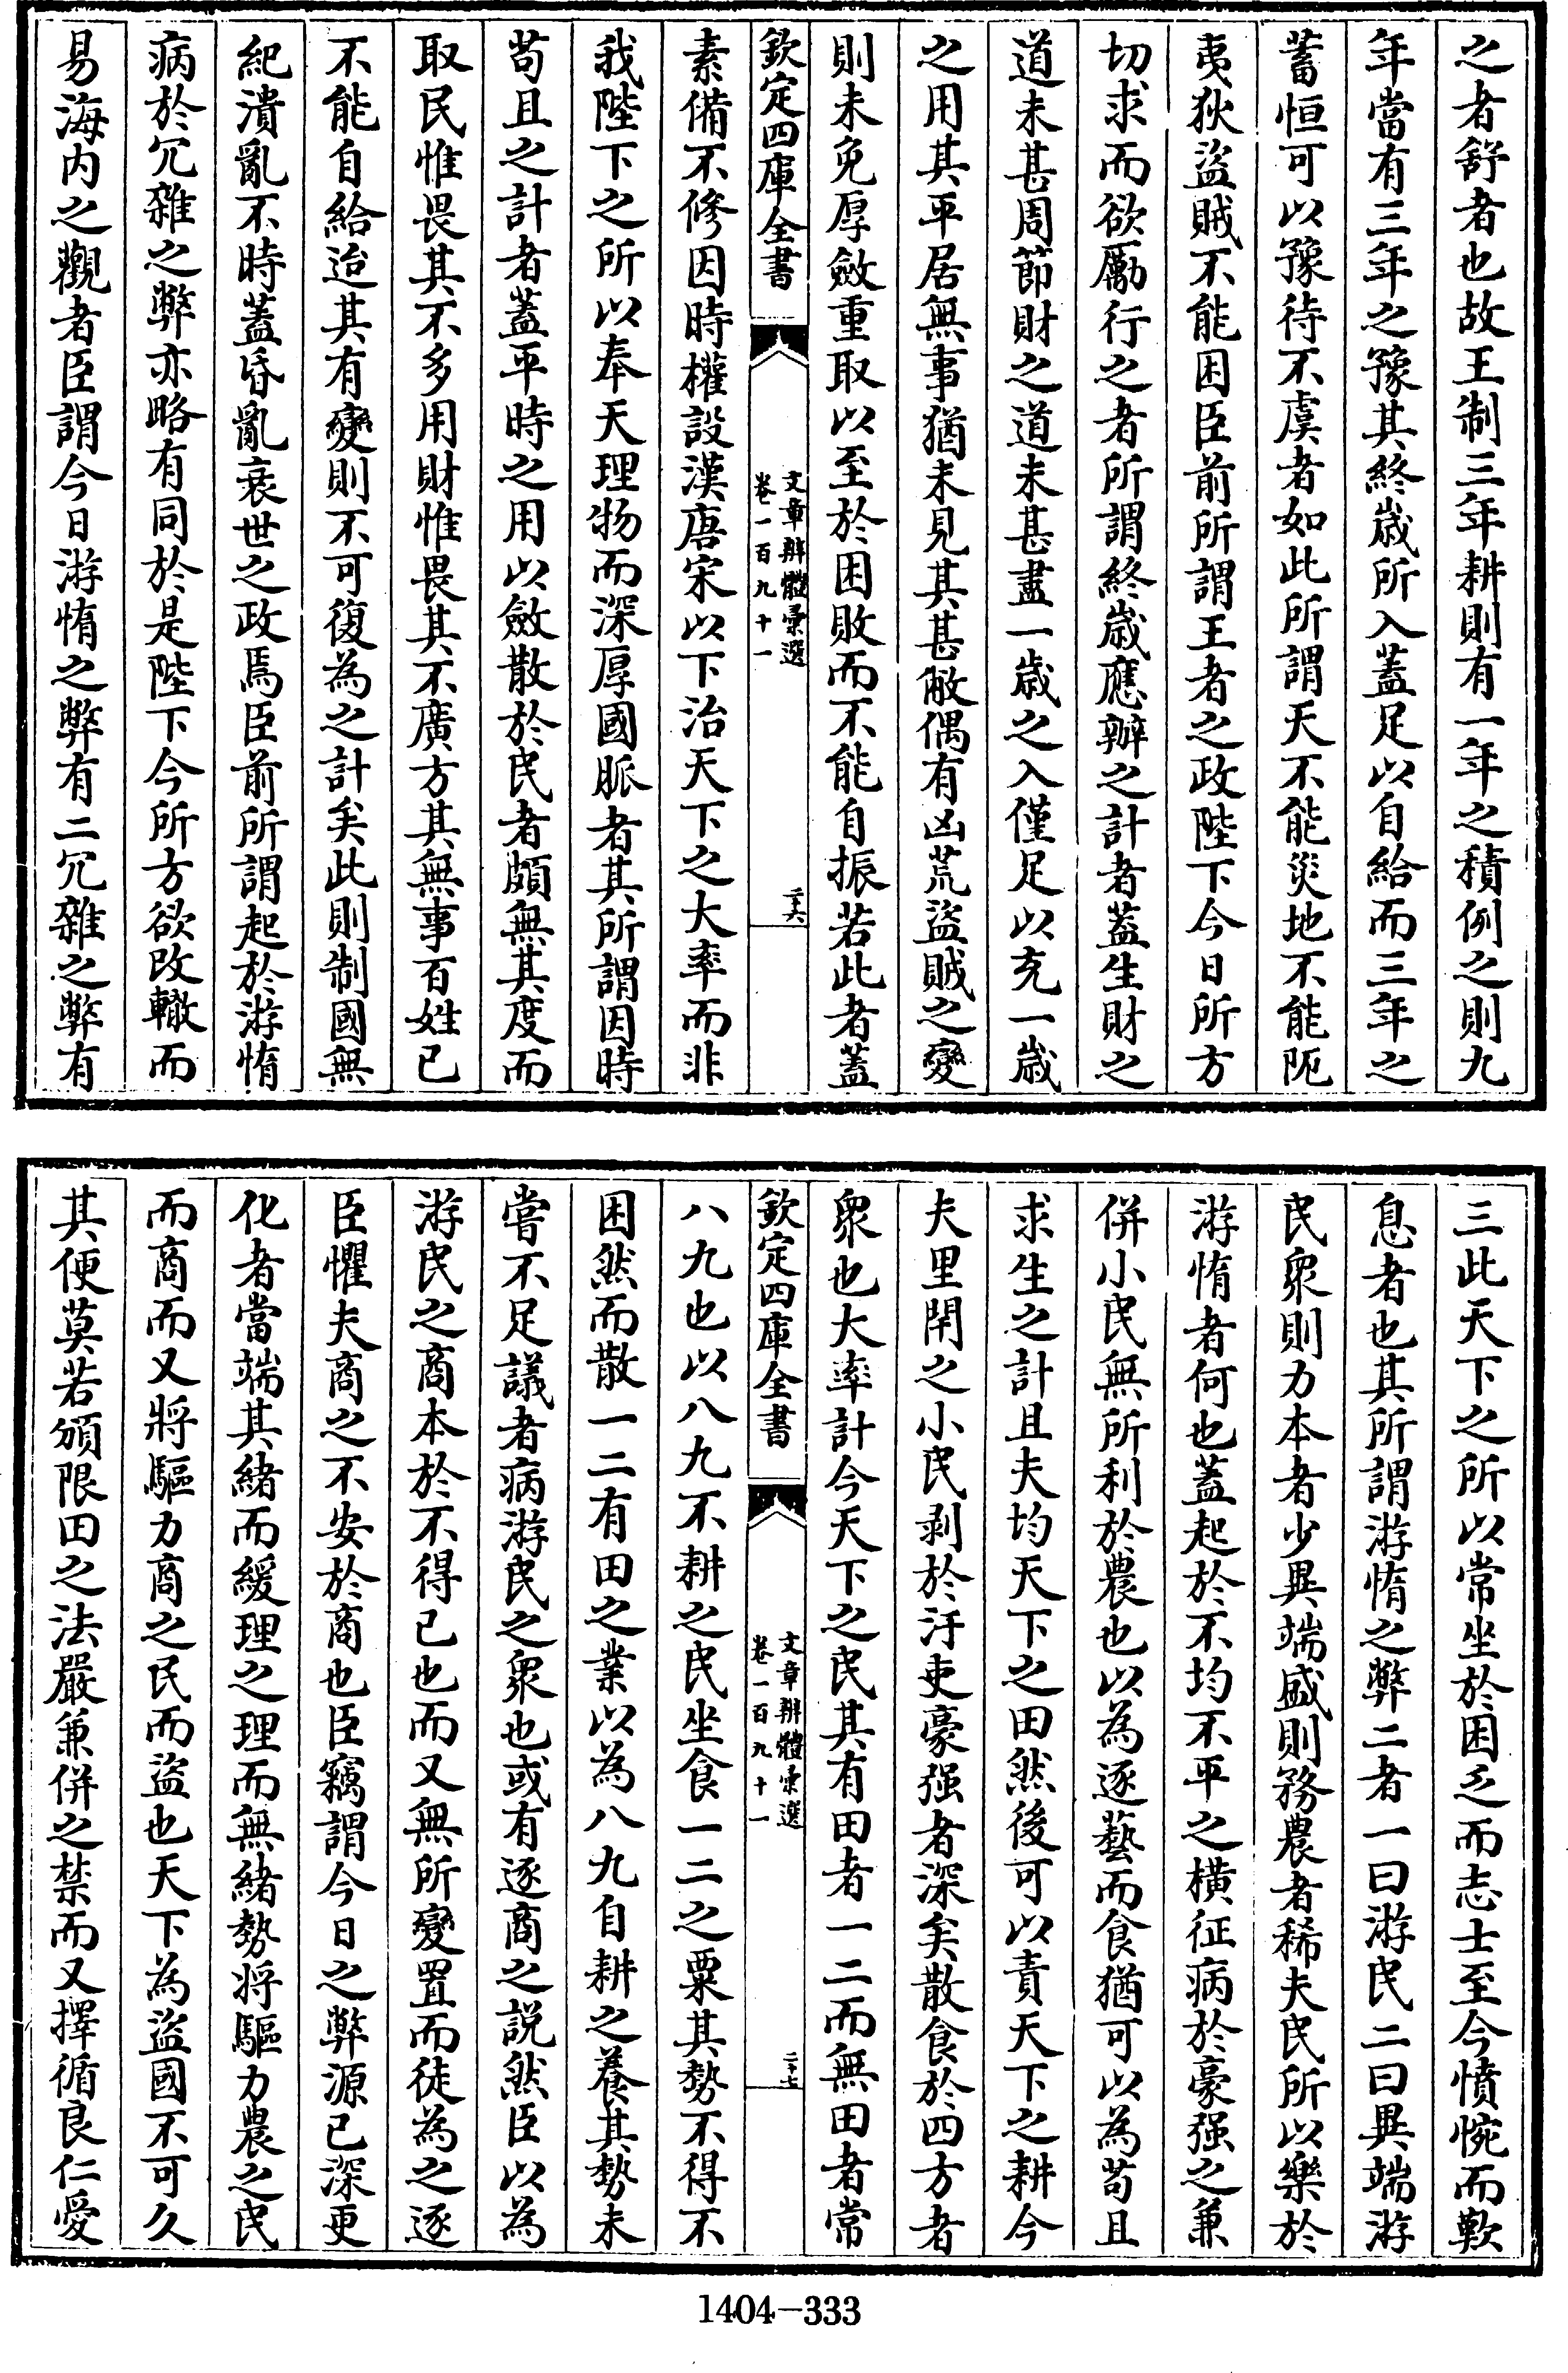 之者舒者也故王制三年耕則有一年之積例之則九
年當有三年之豫其終歲所入蓋足以自給而三年之
蓄恒可以豫待不虞者如此所謂天不能災地不能阨
夷狄盜賊不能困臣前所謂王者之政陛下今日所方
切求而欲勵行之者所謂終歲應辦之計者蓋生財之
道未甚周節財之道未甚盡一歲之入僅足以充一歲
之用其平居無事猶未見其甚敝偶有凶荒盜賊之變
則未免厚斂重取以至於困敗而不能自振若此者蓋
欽定四庫全書
文章辨體彙選
卷一百九十一
二十六
素備不修因時權設漢唐宋以下治天下之大率而非
我陛下之所以奉天理物而深厚國脈者其所謂因時
苟且之計者蓋平時之用以斂散於民者頗無其度而
取民惟畏其不多用財惟畏其不廣方其無事百姓已
不能自給迨其有變則不可復為之計矣此則制國無
紀潰亂不時蓋昏亂衰世之政焉臣前所謂起於游惰
病於冗雜之弊亦略有同於是陛下今所方欲改轍而
易海内之觀者臣謂今日游惰之弊有二冗雜之弊有
三此天下之所以常坐於困乏而志士至今憤惋而歎
息者也其所謂游惰之弊二者一曰游民二曰異端游
民衆則力本者少異端盛則務農者稀夫民所以樂於
游惰者何也蓋起於不均不平之橫征病於豪强之兼
併小民無所利於農也以為逐藝而食猶可以為苟且
求生之計且夫均天下之田然後可以責天下之耕今
夫里閈之小民剥於汙吏豪强者深矣散食於四方者
衆也大率計今天下之民其有田者一二而無田者常
欽定四庫全書
文章辨體彙選
卷一百九十一
二十七
八九也以八九不耕之民坐食一二之粟其勢不得不
困然而散一二有田之業以為八九自耕之養其勢未
嘗不足議者病游民之衆也或有逐商之説然臣以為
游民之商本於不得已也而又無所變置而徒為之逐
臣懼夫商之不安於商也臣竊謂今日之弊源已深更
化者當端其緒而緩理之理而無緒勢將驅力農之民
而商而又將驅力商之民而盜也天下為盜國不可久
其便莫若頒限田之法嚴兼併之禁而又擇循良仁愛
1404-333